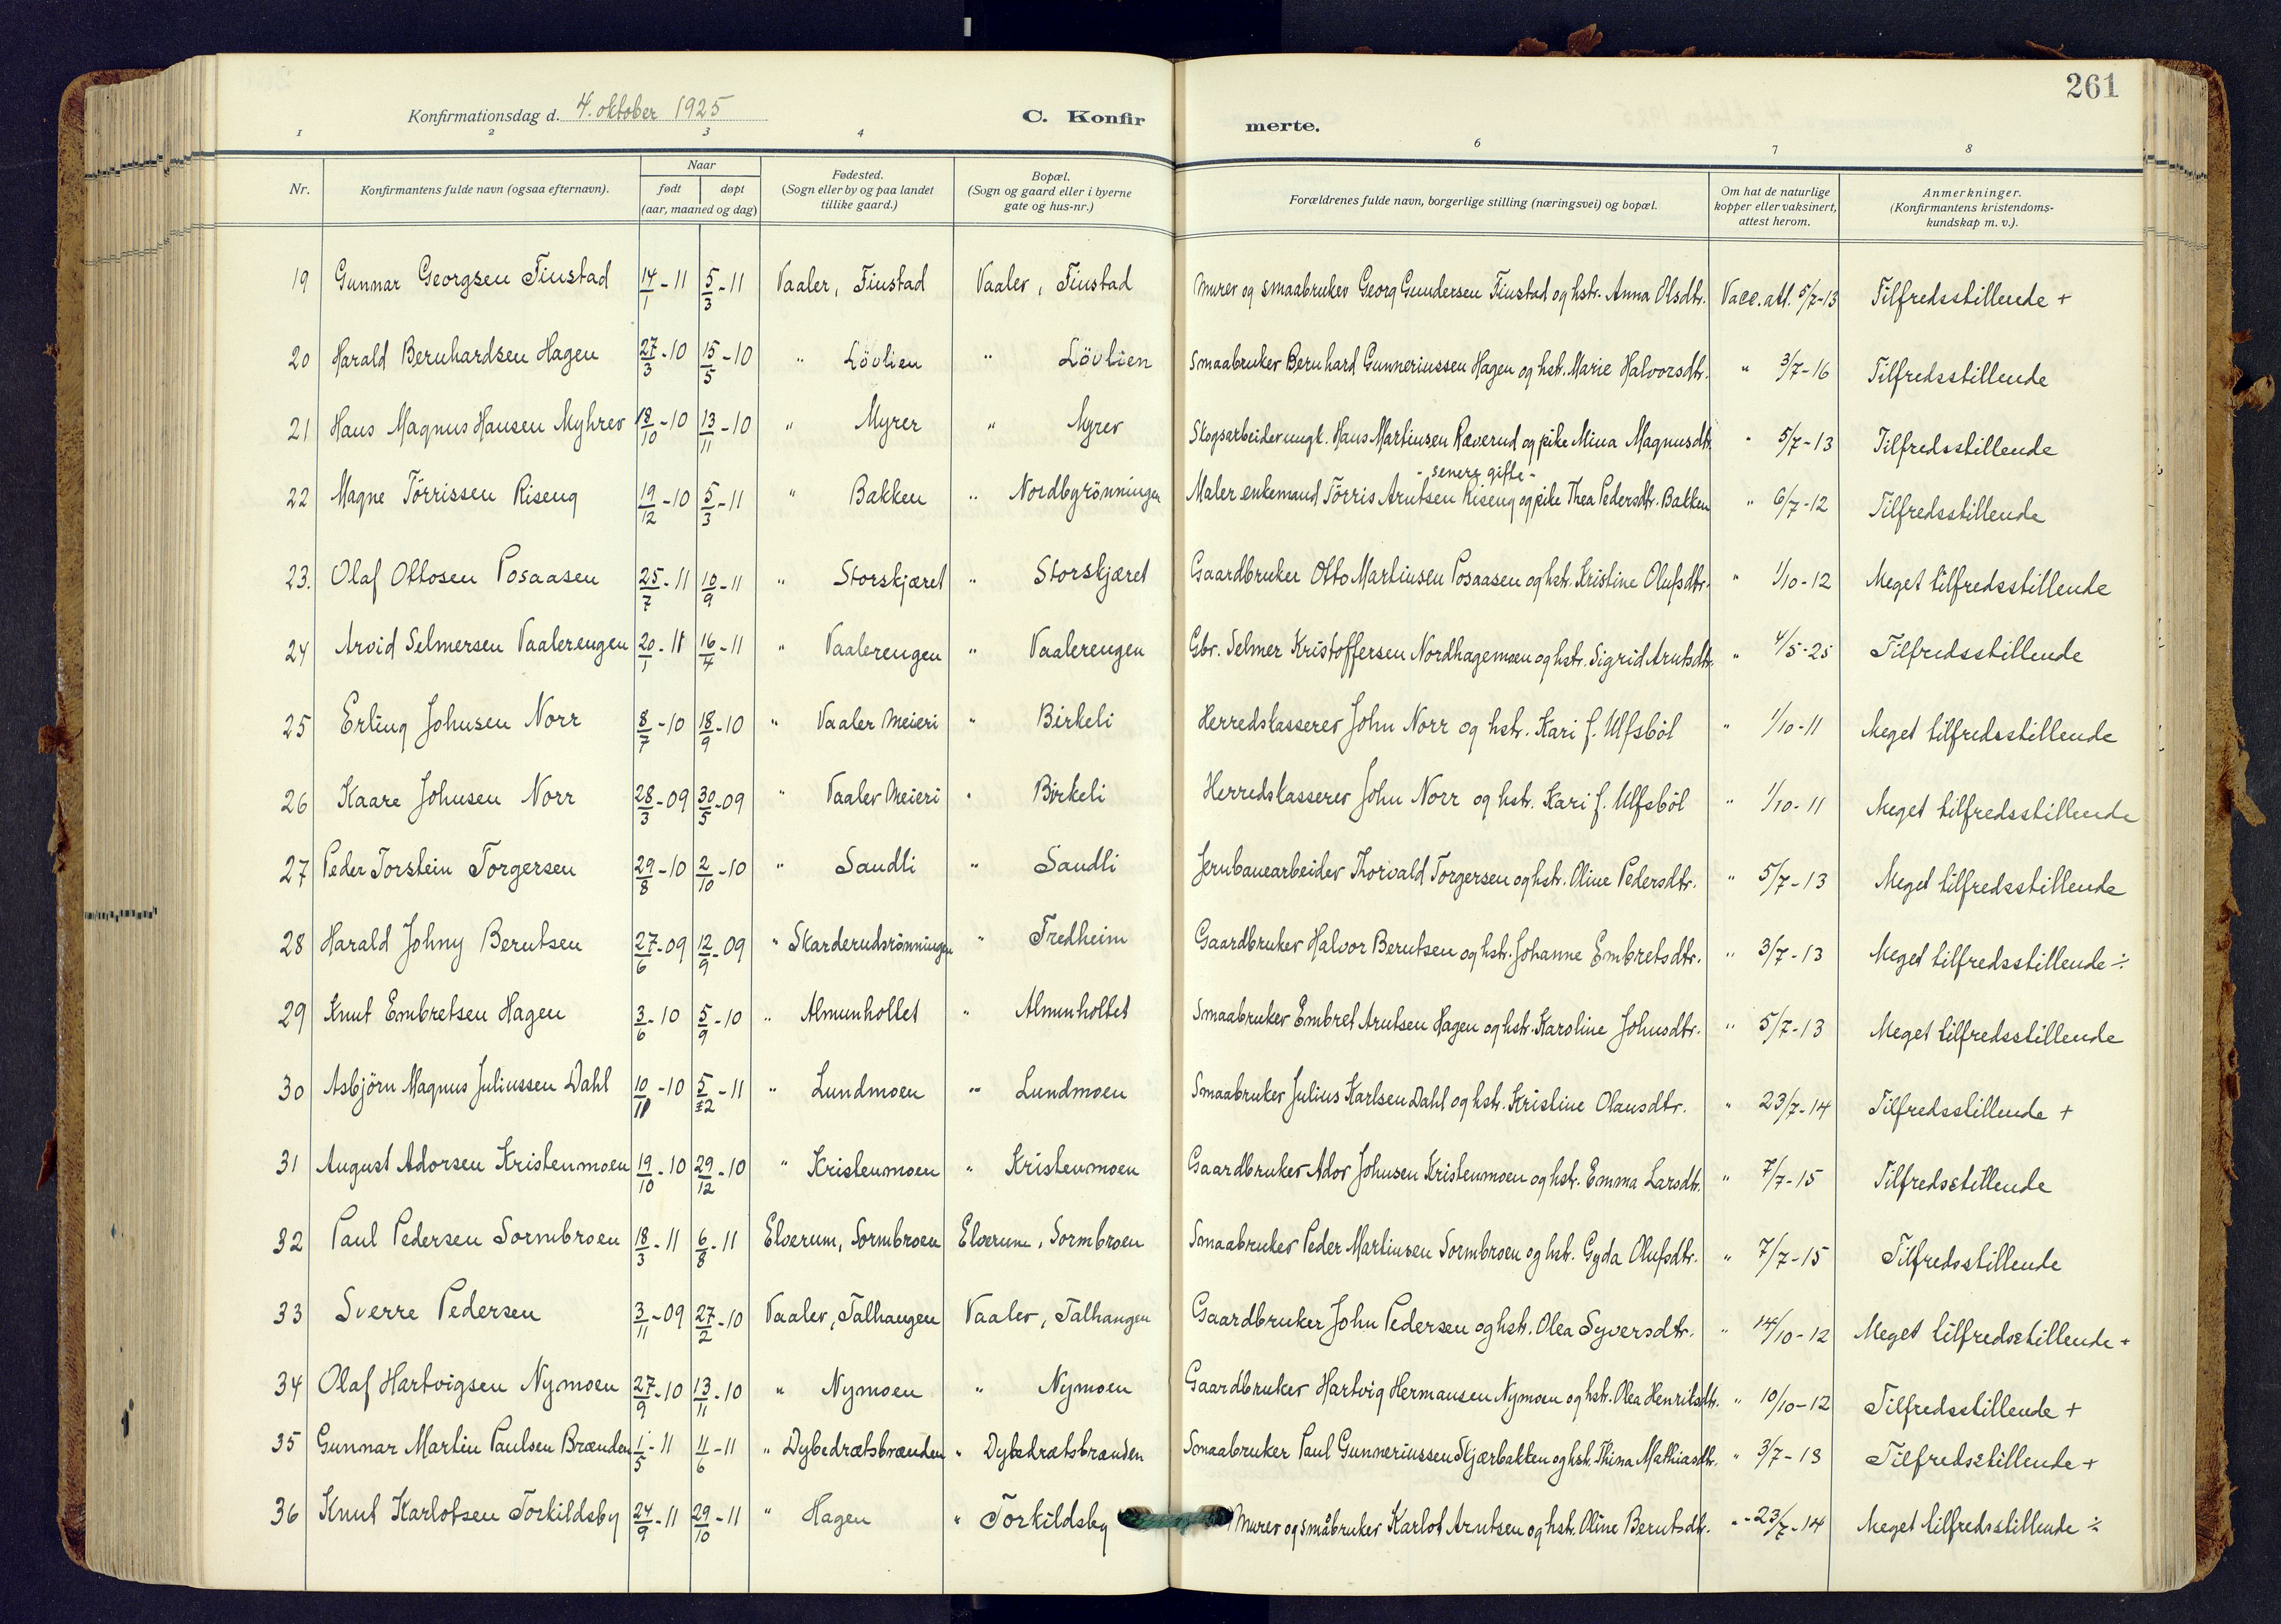 261
Konfirmationsdag d. 4. oktober 1925
C. Konfir
merte.
1 2 3 4 6 7 8
Nr.
Konfirmantens fulde navn (ogsaa efternavn).
Naar
født døpt
(aar, maaned og dag)
Fødested.
(Sogn eller by og paa landet
tillike gaard.)
Bopæl.
(Sogn og gaard eller i byerne
gate og hus-nr.)
Forældrenes fulde navn, borgerlige stilling (næringsvei) og bopæl.
Om hat de naturlige
kopper eller vaksinert,
attest herom.
Anmerkninger.
(Konfirmantens kristendoms-
kundskap m. v.).
19 Gunnar Georgsen Finstad 14/1-11 5/3-11 Vaaler, Finstad Vaaler, Finstad Murer og smaabruker Georg Gundersen Finstad og hstr. Anna Olsdtr. Vacc. att. 5/7-13 Tilfredsstillende +
20 Harald Bernhardsen Hagen 27/3-10 15/5-10 " Lövlien " Lövlien Smaabruker Bernhard Gunneriussen Hagen og hstr. Marie Halvorsdtr. " 3/7-16 Tilfredsstillende
21 Hans Magnus Hansen Myhrer 18/10-10 13/11-10 " Myrer " Myrer Skogsarbeider ungk. Hans MartinsenRæverud og pike Mina Magnusdtr. " 5/7-13 Tilfredsstillende
- senere gifte -
22 Magne Törrissen Riseng 19/12-10 5/3-11 " Bakken " Nordbygrönningen Maler enkemand Törris Arntsen Riseng og pike Thea Pedersdtr. Bakken " 6/7-12 Tilfredsstillende
23. Olaf Ottosen Posaasen 25/7-11 10/9-11 " Storskjæret " Storskjæret Gaardbruker Otto Martinsen Posaasen og hstr. Kristine Olufsdtr. " 1/10-12 Meget tilfredsstillende
24 Arvid Selmersen Vaalerengen 20/1-11 16/4-11 " Vaalerengen " Vaalerengen Gbr. Selmer Kristoffersen Nordhagemoen og hstr. Sigrid Arntsdtr. " 4/5-25 Tilfredsstillende
25 Erling Johnsen Norr 8/7-10 18/9-10 " Vaaler Meieri " Birkeli Herredskasserer John Norr og hstr. Kari f. Ulfsböl " 1/10-11 Meget tilfredsstillende
26 Kaare Johnsen Norr 28/3-09 30/5-09 " Vaaler Meieri " Birkeli Herredskasserer John Norr og hstr. Kari f. Ulfsböl " 1/10-11 Meget tilfredsstillende
27 Peder Torstein Torgersen 29/8-10 2/10-10 " Sandli " Sandli Jernbanearbeider Thorvald Torgersen og hstr. Oline Pedersdtr. " 5/7-13 Meget tilfredsstillende
28 Harald Johny Berntsen 27/6-09 12/9-09 " Skarderudsrönningen " Fredheim Gaardbruker Halvor Berntsen og hstr. Johanne Embretsdtr. " 3/7-13 Meget tilfredsstillende ÷
29 Knut Embretsen Hagen 3/6-10 5/9-10 " Almunholtet " Almunholtet Smaabruker Embret Arntsen Hagen og hstr. Karoline Johnsdtr. " 5/7-13 Meget tilfredsstillende
30 Asbjörn Magnus Juliussen Dahl 10/11-10 5/2-11 " Lundmoen " Lundmoen Smaabruker Julius Karlsen Dahl og hstr. Kristine Olausdtr. " 23/7-14 Tilfredsstillende +
31 August Adorsen Kristenmoen 19/10-10 29/12-10 " Kristenmoen " Kristenmoen Gaardbruker Ador Johnsen Kristenmoen og hstr. Emma Larsdtr. " 7/7-15 Tilfredsstillende
32 Paul Pedersen Sormbroen 18/3-11 6/8-11 Elverum, Sormbroen Elverum, Sormbroen Smaabruker Peder Martinsen Sormbroen og hstr. Gyda Olufsdtr. " 7/7-15 Tilfredsstillende
33 Sverre Pedersen 3/11-09 27/2-10 Vaaler, Talhaugen Vaaler, Talhaugen Gaardbruker John Pedersen og hstr. Olea Syversdtr. " 14/10-12 Meget tilfredsstillende +
34 Olaf Hartvigsen Nymoen 27/9-10 13/11-10 " Nymoen " Nymoen Gaardbruker Hartvig Hermansen Nymoen og hstr. Olea Henriksdtr. " 10/10-12 Tilfredsstillende +
35 Gunnar Martin Paulsen Brænden 1/5-11 11/6-11 " Dybedrætsbrænden " Dybedrætsbrænden Smaabruker Paul Gunneriussen Skjærbakken og hstr. Thina Mathiasdtr. " 3/7-13 Tilfredsstillende +
36 Knut Karlotsen Torkildsby 24/9-11 29/10-11 " Hagen " Torkildsby Murer og småbruker Karlot Arntsen og hstr. Oline Berntsdtr. " 23/7-14 Meget tilfredsstillende ÷